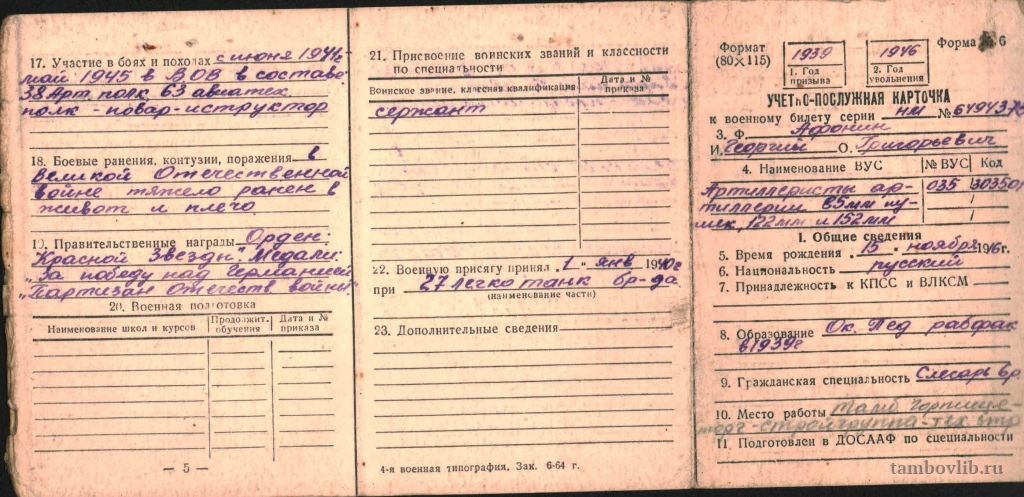 17. Участие в боях и походах с июня 1941г
май 1945 в ВОВ в составе
38 Арт. полк 63 авиатех.
полк - повар-иструктор
18. Боевые ранения, контузии, поражения в
Великой Отечественной
войне тяжело ранен в
живот и плечо
19. Правительственные награды Орден:
"Красной Звезды". Медали:
"За победу над Германией
"Партизан Отечеств войны"
20. Военная подготовка
Наименование школ и курсов
Продолжит. обучения
Дата и № приказа
— 5 —
21. Присвоение воинских званий и классности
по специальности
Воинское звание, классная квалификация
Дата и № приказа
сержант
22. Военную присягу принял „1" янв 1940г
при 27 легко танк бр-да
(наименование части)
23. Дополнительные сведения
4-я военная типография. Зак. 6-64 г.
Формат
(80×115)
1939
1. Год призыва
1946
2. Год увольнения
Форма № 6
УЧЕТНО-ПОСЛУЖНАЯ КАРТОЧКА
к военному билету серии НМ №
3. Ф. Афонин
И. Георгий О. Григорьевич
4. Наименование ВУС № ВУС Код
Артиллеристы ар- 035
тиллерии 85мм пу-
шек, 122мм и 152мм
I. Общие сведения
5. Время рождения „15" ноября 1916г
6. Национальность русский
7. Принадлежность к КПСС и ВЛКСМ —
8. Образование Ок. Пед рабфак
в 1939г
9. Гражданская специальность Слесарь
10. Место работы Тамб
11. Подготовлен в ДОСААФ по специальности
tambovlib.ru